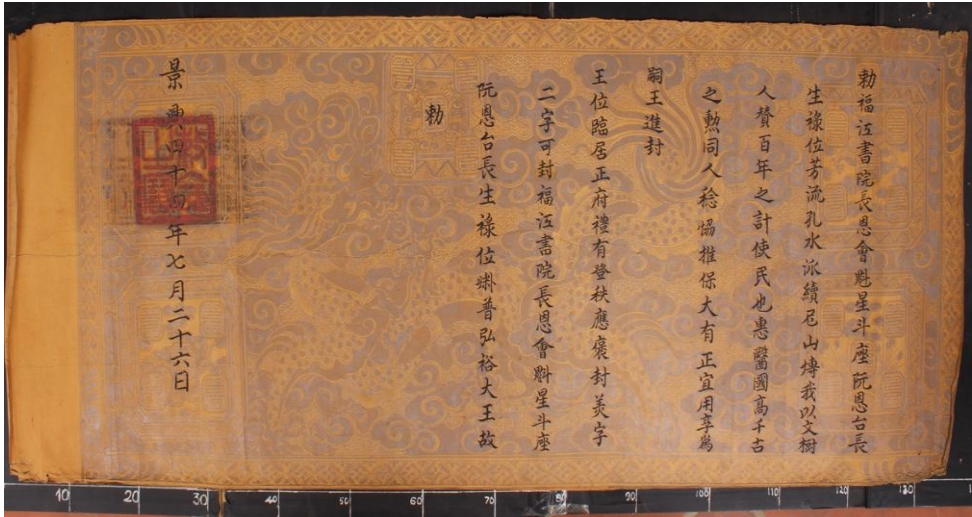 勅福江書院長恩會魁星斗座阮恩台長
生祿位芳流孔水派續尼山燽我以文樹
人贊百年之計使民也惠醫國高千古
之勲同人稔協推保大有正宜用享為
嗣王進封
王位臨居正府禮有登秩應褒封美字
二字可封福江書院長恩會魁星斗座
阮恩台長生祿位溥普弘裕大王故
勅
景興四十四年七月二十六日
10 20 30 40 50 60 70 80 90 100 110 120 130